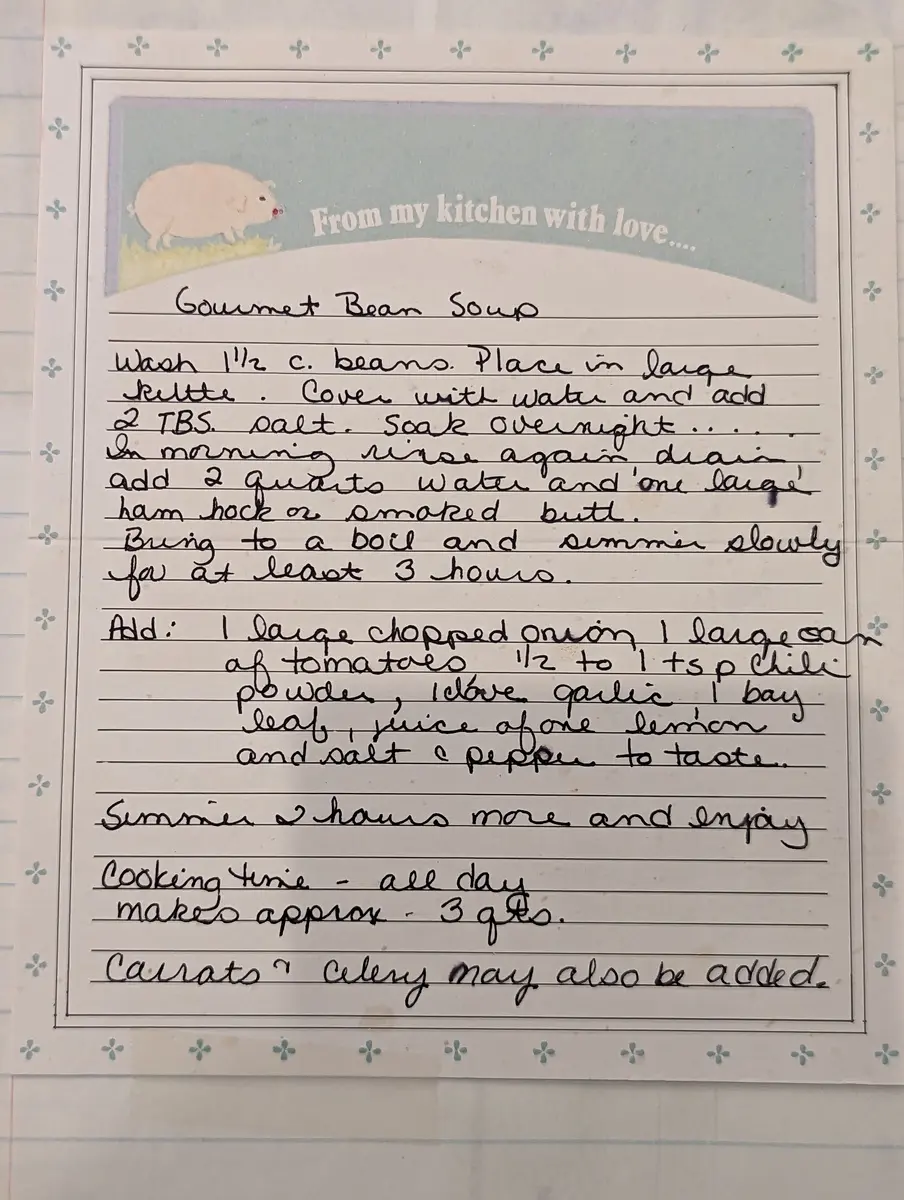 From my kitchen with love....
Gourmet Bean Soup
Wash 1 1/2 c. beans. Place in large
kettle. Cover with water and add
2 TBS. salt. Soak overnight.....
In morning rinse again drain
add 2 quarts water and one large
ham hock or smoked butt.
Bring to a boil and simmer slowly
for at least 3 hours.
Add: 1 large chopped onion, 1 large can
of tomatoes 1/2 to 1 tsp chili
powder, 1 clove garlic, 1 bay
leaf, juice of one lemon
and salt & pepper to taste.
Simmer 2 hours more and enjoy
Cooking time - all day
makes approx - 3 qts.
Carrots & Celery may also be added.